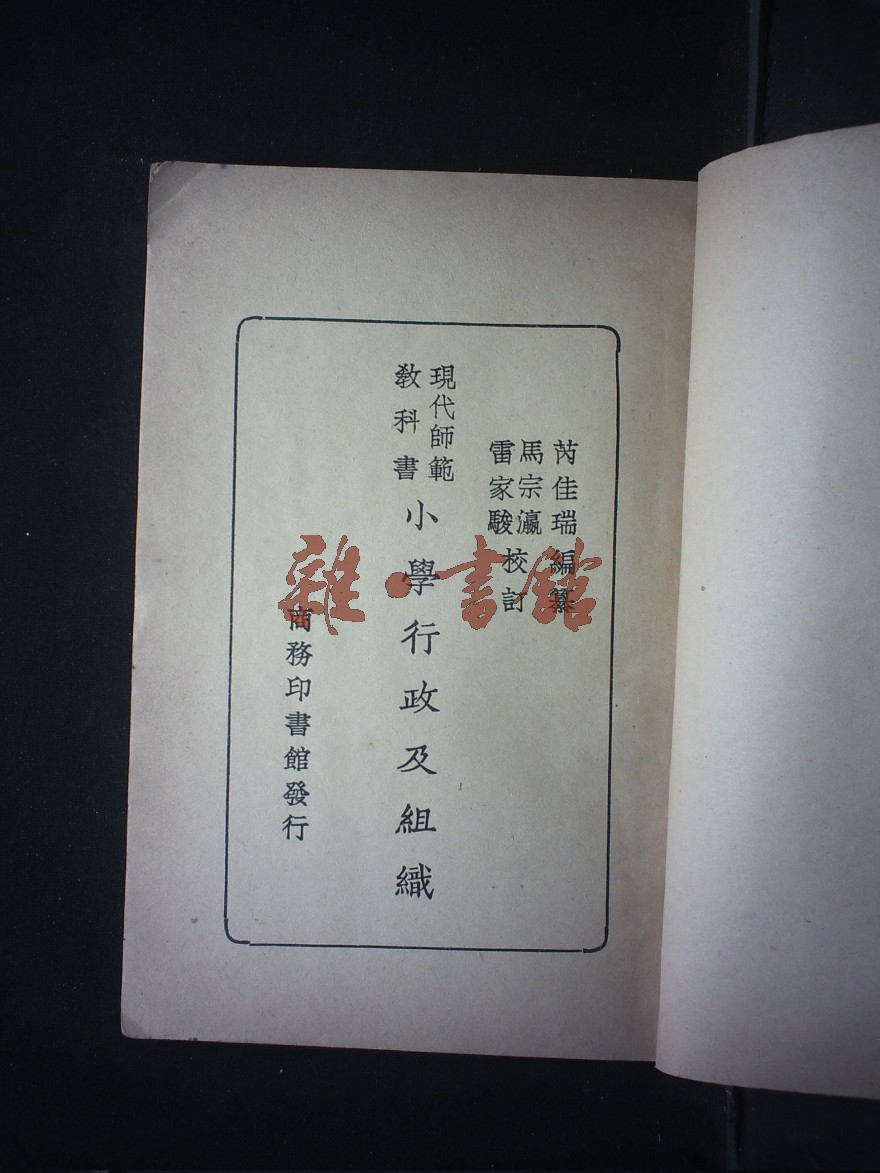 芮佳瑞編纂
馬宗瀛
雷家駿
校訂
現代師範
教科書
小學行政及組織
商務印書館發行
雜·書館